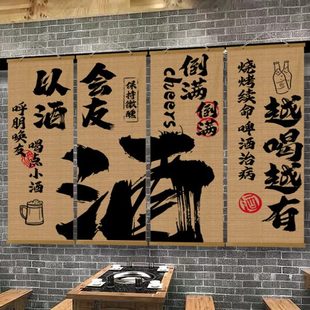 以酒
会友
呼朋唤友
喝点小酒
保持微醺
cheers
倒满
倒满
酒
烧烤续命
啤酒治病
越喝越有